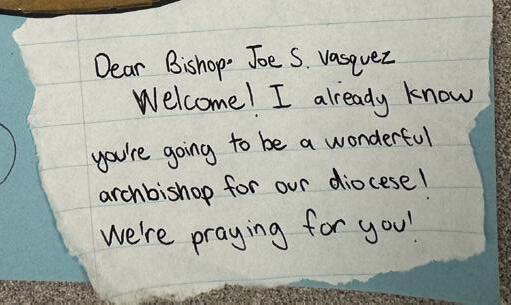 Dear Bishop. Joe S. Vasquez
Welcome! I already know
you're going to be a wonderful
archbishop for our diocese!
We're praying for you!